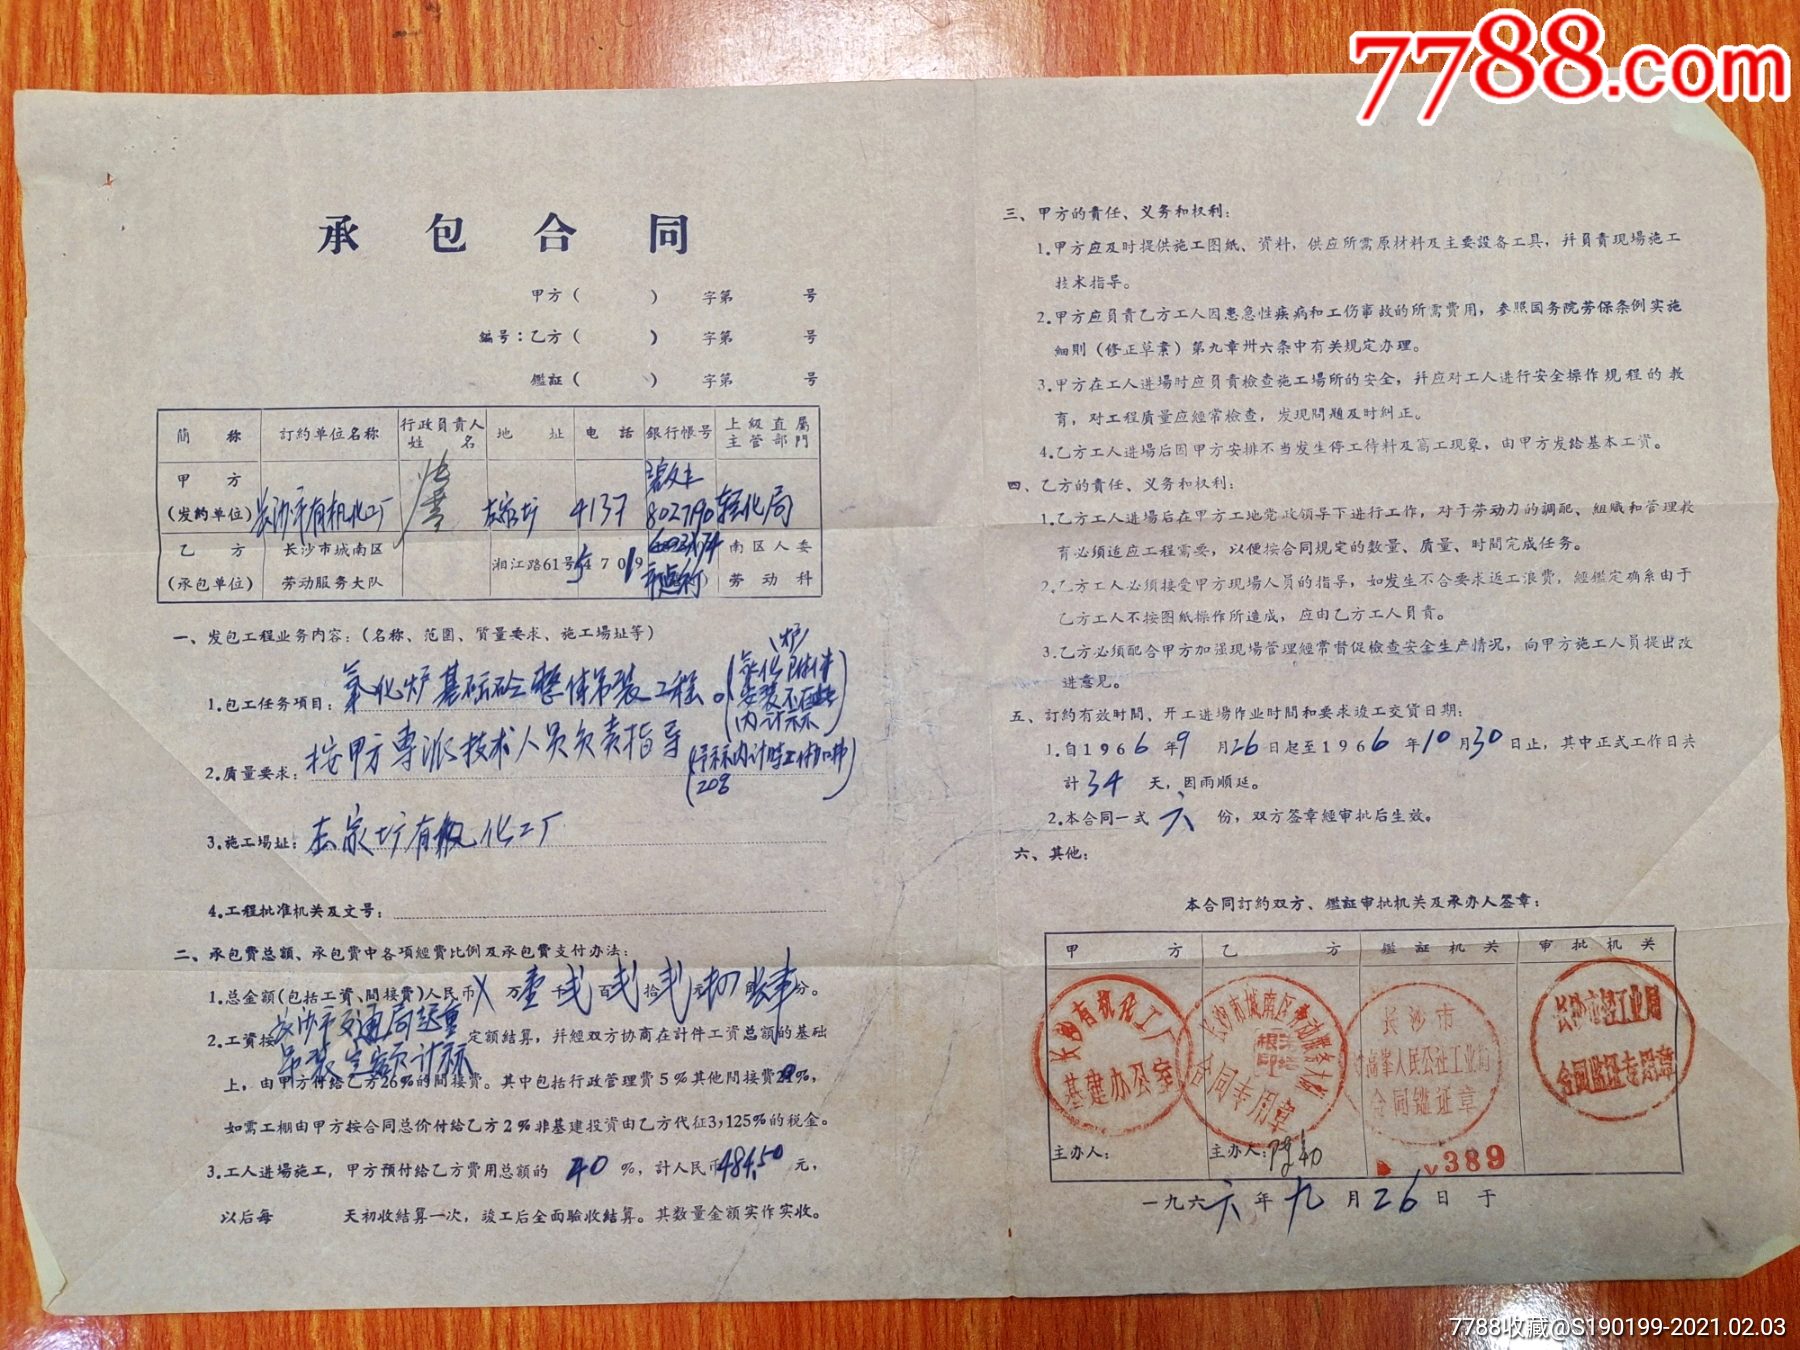 7788.com
承包合同
甲方（　　）　字第　　号
編号：乙方（　　）　字第　　号
鑑証（　　）　字第　　号
簡称　訂約单位名称　行政員責人姓名　地址　电話　銀行帳号　上級直屬主管部門
甲方
（发約单位）　长沙市有机化工厂　4137　8027190　轻化局
乙方　长沙市城南区　南区人委
（承包单位）　劳动服务大队　湘江路61号　劳动科
一、发包工程业务内容：（名称、范圍、質量要求、施工場址等）
1.包工任务項目：氧化炉基础砼整体吊装工程。
2.质量要求：按甲方专派技术人员负责指导
3.施工場址：有机化工厂
4.工程批准机关及文号：
二、承包費总額、承包費中各項經費比例及承包費支付办法：
1.总金額（包括工資、間接費）人民币 万壹千贰百贰拾贰元 角 分。
2.工資按长沙市交通局起重
吊装定额计标 定額結算，幷經双方协商在計件工資总額的基础
上，由甲方付給乙方26％的間接費。其中包括行政管理費5％其他間接費21％，
如需工棚由甲方按合同总价付給乙方2％非基建投資由乙方代征3,125％的税金。
3.工人进場施工，甲方預付給乙方費用总額的 40 ％，計人民币484.50元，
以后每　　天初收結算一次，竣工后全面驗收結算。其数量金額实作实收。
三、甲方的責任、义务和权利：
1.甲方应及时提供施工图紙、資料，供应所需原材料及主要設备工具，幷員責現場施工
技术指导。
2.甲方应員責乙方工人因患急性疾病和工伤事故的所需費用，参照国务院劳保条例实施
細則（修正草案）第九章卅六条中有关規定办理。
3.甲方在工人进場时应員責檢查施工場所的安全，幷应对工人进行安全操作規程的教
育，对工程质量应經常檢查，发現問題及时糾正。
4.乙方工人进場后因甲方安排不当发生停工待料及窩工現象，由甲方发給基本工資。
四、乙方的責任、义务和权利：
1.乙方工人进場后在甲方工地党政領导下进行工作，对于劳动力的調配、組織和管理教
育必須适应工程需要，以便按合同規定的数量、质量、时間完成任务。
2.乙方工人必須接受甲方現場人員的指导，如发生不合要求返工浪費，經鑑定确系由于
乙方工人不按图紙操作所造成，应由乙方工人員責。
3.乙方必須配合甲方加强現場管理經常督促檢查安全生产情况，向甲方施工人員提出改
进意見。
五、訂約有效时間、开工进場作业时間和要求竣工交貨日期：
1.自1966年9月26日起至1966年10月30日止，其中正式工作日共
計34天，因雨順延。
2.本合同一式六份，双方签章經审批后生效。
六、其他：
本合同訂約双方、鑑証审批机关及承办人签章：
甲方　乙方　鑑証机关　审批机关
长沙有机化工厂
基建办公室
长沙市城南区劳动服务大队
合同专用章
长沙市
合同鑑证章
长沙市轻工业局
合同鉴证专用章
主办人：　主办人：　389
一九六六年九月26日于
7788收藏@S190199-2021.02.03